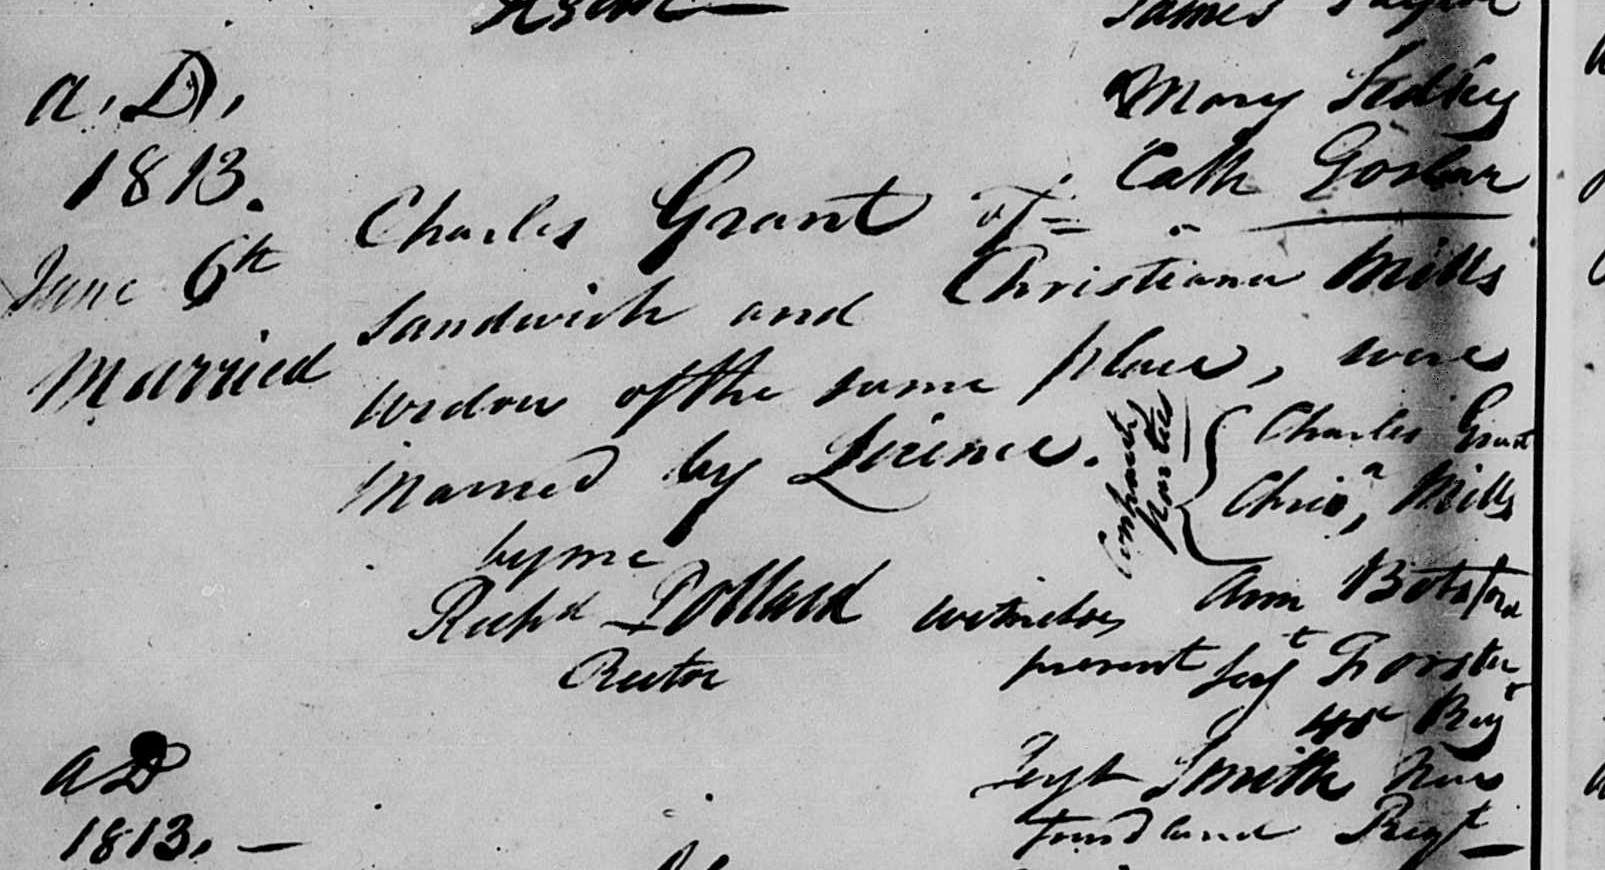 James
Mary
Cath Goslar
A. D.
1813.
June 6th
Married
Charles Grant of
Sandwich and Christiana Mills
widow of the same place, were
Married by Licence.
by me
Richd Pollard
Rector
Company
Parties
Charles Grant
Chrisa, Mills
witnesses
present
Ann Botsford
Sergt Forster
Regt
Sergt Smith New
foundland Regt
AD
1813. —